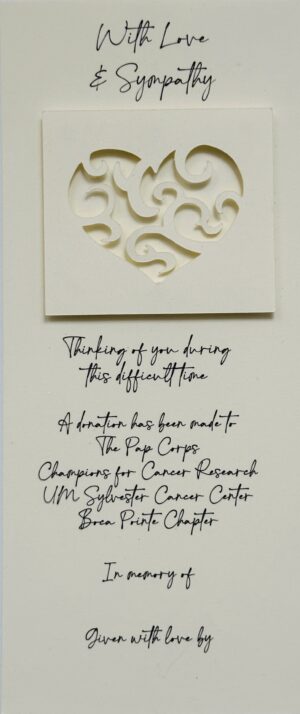 With Love
& Sympathy
Thinking of you during
this difficult time
A donation has been made to
The Pap Corps
Champions for Cancer Research
UM Sylvester Cancer Center
Boca Pointe Chapter
In memory of
Given with love by